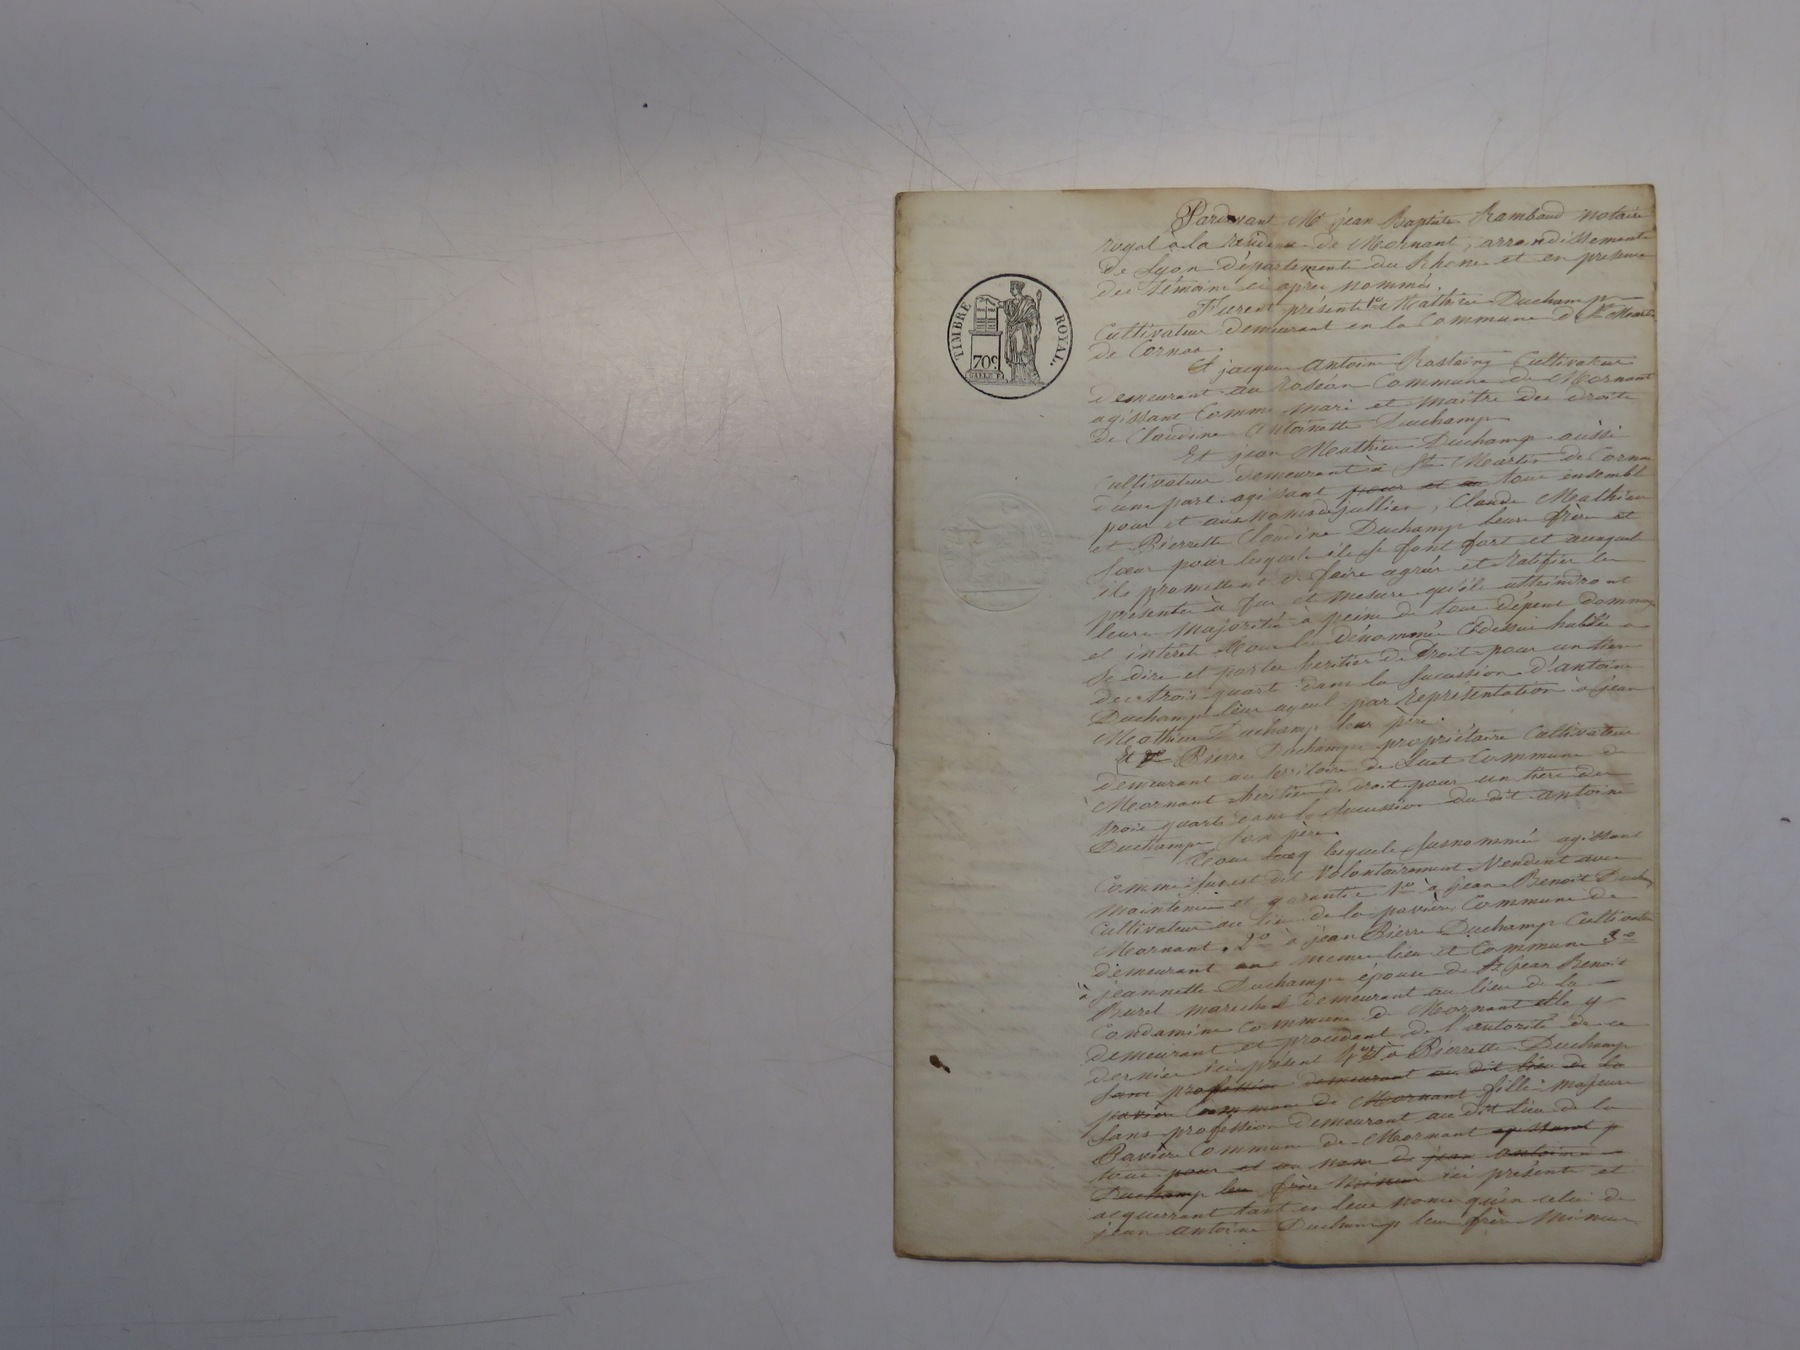 TIMBRE ROYAL
70c
Pardevant Me jean Baptiste Rambaud notaire
royal à la résidence de Mornant, arrondissement
de Lyon département du Rhone et en présence
des témoins ci après nommés.
Furent présents 1o Mathieu Duchamp
Cultivateur demeurant en la Commune de St Martin
de Cornas.
Et jacques Antoine Rastaing Cultivateur
demeurant au Roséon Commune de Mornant
agissant Comme mari et maitre des droits
de Claudine Antoinette Duchamp
Et jean Mathieu Duchamp aussi
Cultivateur demeurant à St Martin de Cornas
d'une part agissant pour et au tous ensemble
pour et aux noms de jullien, Claude Mathieu
et Pierrette Claudine Duchamp leurs frère et
sœur pour lesquels ils se font fort et auxquels
ils promettent de faire agréer et ratifier les
présentes à fur et mesure qu'ils atteindront
leur majorité à peine de tous dépens dommages
et intérêts Tous les dénommés Cidessus habiles à
se dire et porter heritiers de Droit pour un tiers
des trois quarts dans la succession d'antoine
Duchamp leur ayeul par représentation à jean
Mathieu Duchamp leur père.
Et Pierre Duchamp propriétaire Cultivateur
demeurant au territoire de Commune de
Mornant heritier de droit pour un tiers des
trois quarts dans la succession du dit antoine
Duchamp son père.
Tous lesquels susnommés agissant
Comme sus est dit Volontairement Vendent avec
maintenue et garantie 1o à jean Benoit Duchamp
Cultivateur au lieu de la pavière Commune de
Mornant. 2o à jean Pierre Duchamp Cultivateur
demeurant aux memes lieu et Commune 3o
à jeannette Duchamp épouse de Sr jean Benoit
Burel maréchal demeurant au lieu de la
Condamine Commune de Mornant elle y
demeurant et procédant de l'autorité de ce
dernier ici présent 4o et à Pierrette Duchamp
sans profession demeurant au dit lieu de la
pavière Commune de Mornant fille majeure
sans profession demeurant au dit lieu de la
Pavière Commune de Mornant agissant p
tous pour et au nom de jean antoine
Duchamp leu frère Mineur ici présents et
acquerrant tant en leurs noms qu'en celui de
jean antoine Duchamp leur frère Mineur